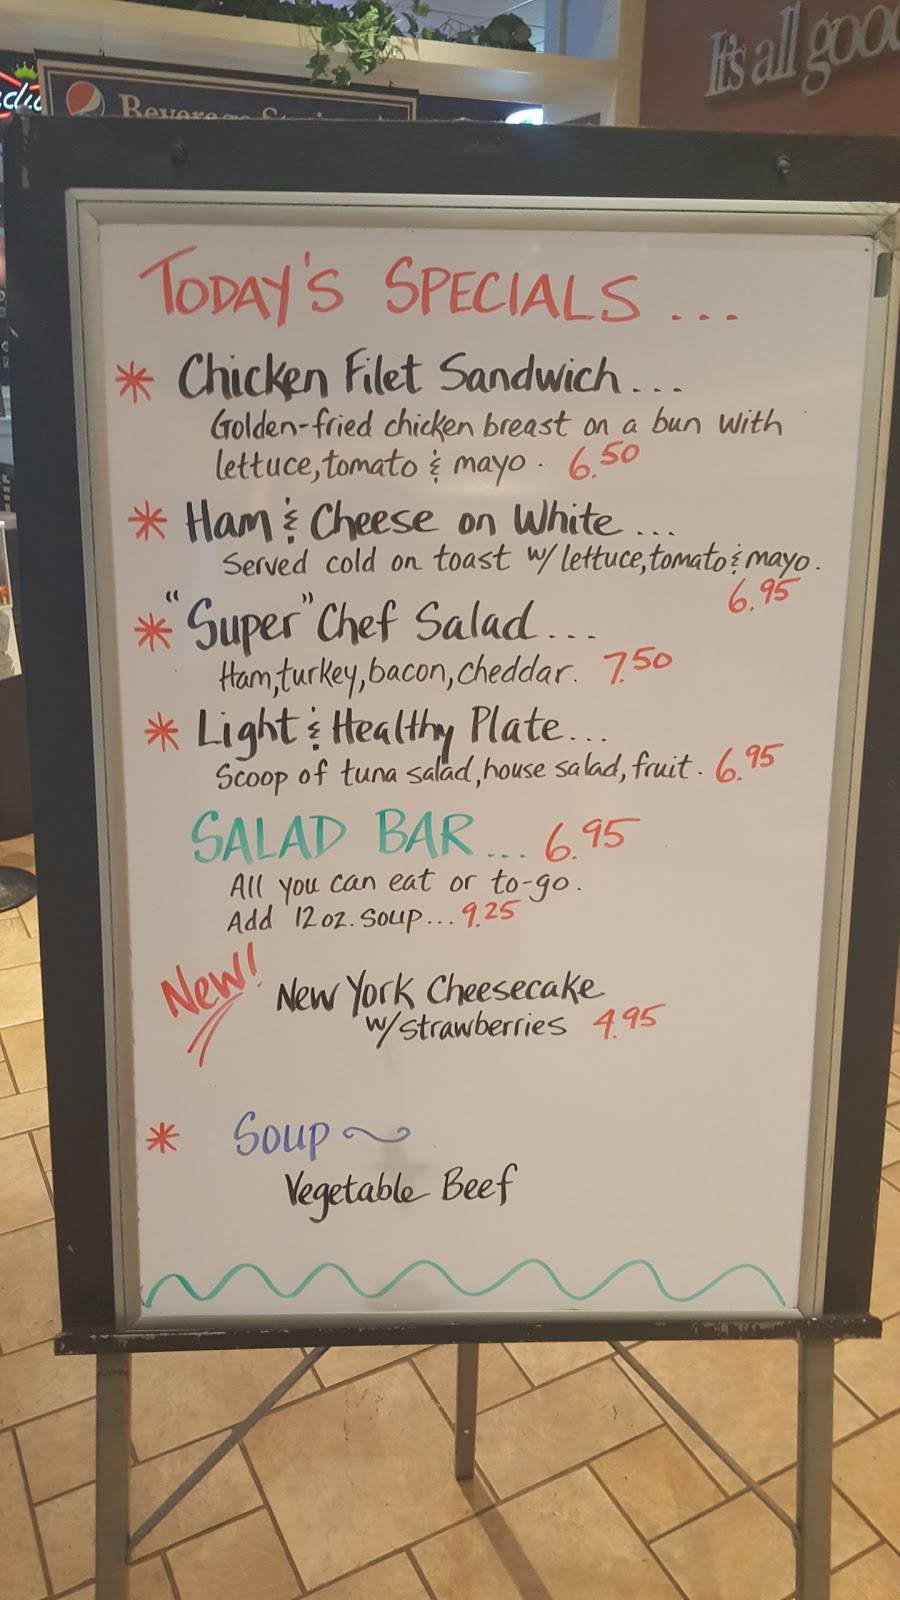 It's all good
Beverage
TODAY'S SPECIALS ...
* Chicken Filet Sandwich...
Golden-fried chicken breast on a bun with
lettuce, tomato & mayo. 6.50
* Ham & Cheese on White...
Served cold on toast w/ lettuce, tomato & mayo.
6.95
* "Super" Chef Salad...
Ham, turkey, bacon, cheddar. 7.50
* Light & Healthy Plate...
Scoop of tuna salad, house salad, fruit. 6.95
SALAD BAR ... 6.95
All you can eat or to-go.
Add 12 oz. soup... 9.25
New! New York Cheesecake
w/strawberries 4.95
* Soup ~
Vegetable Beef